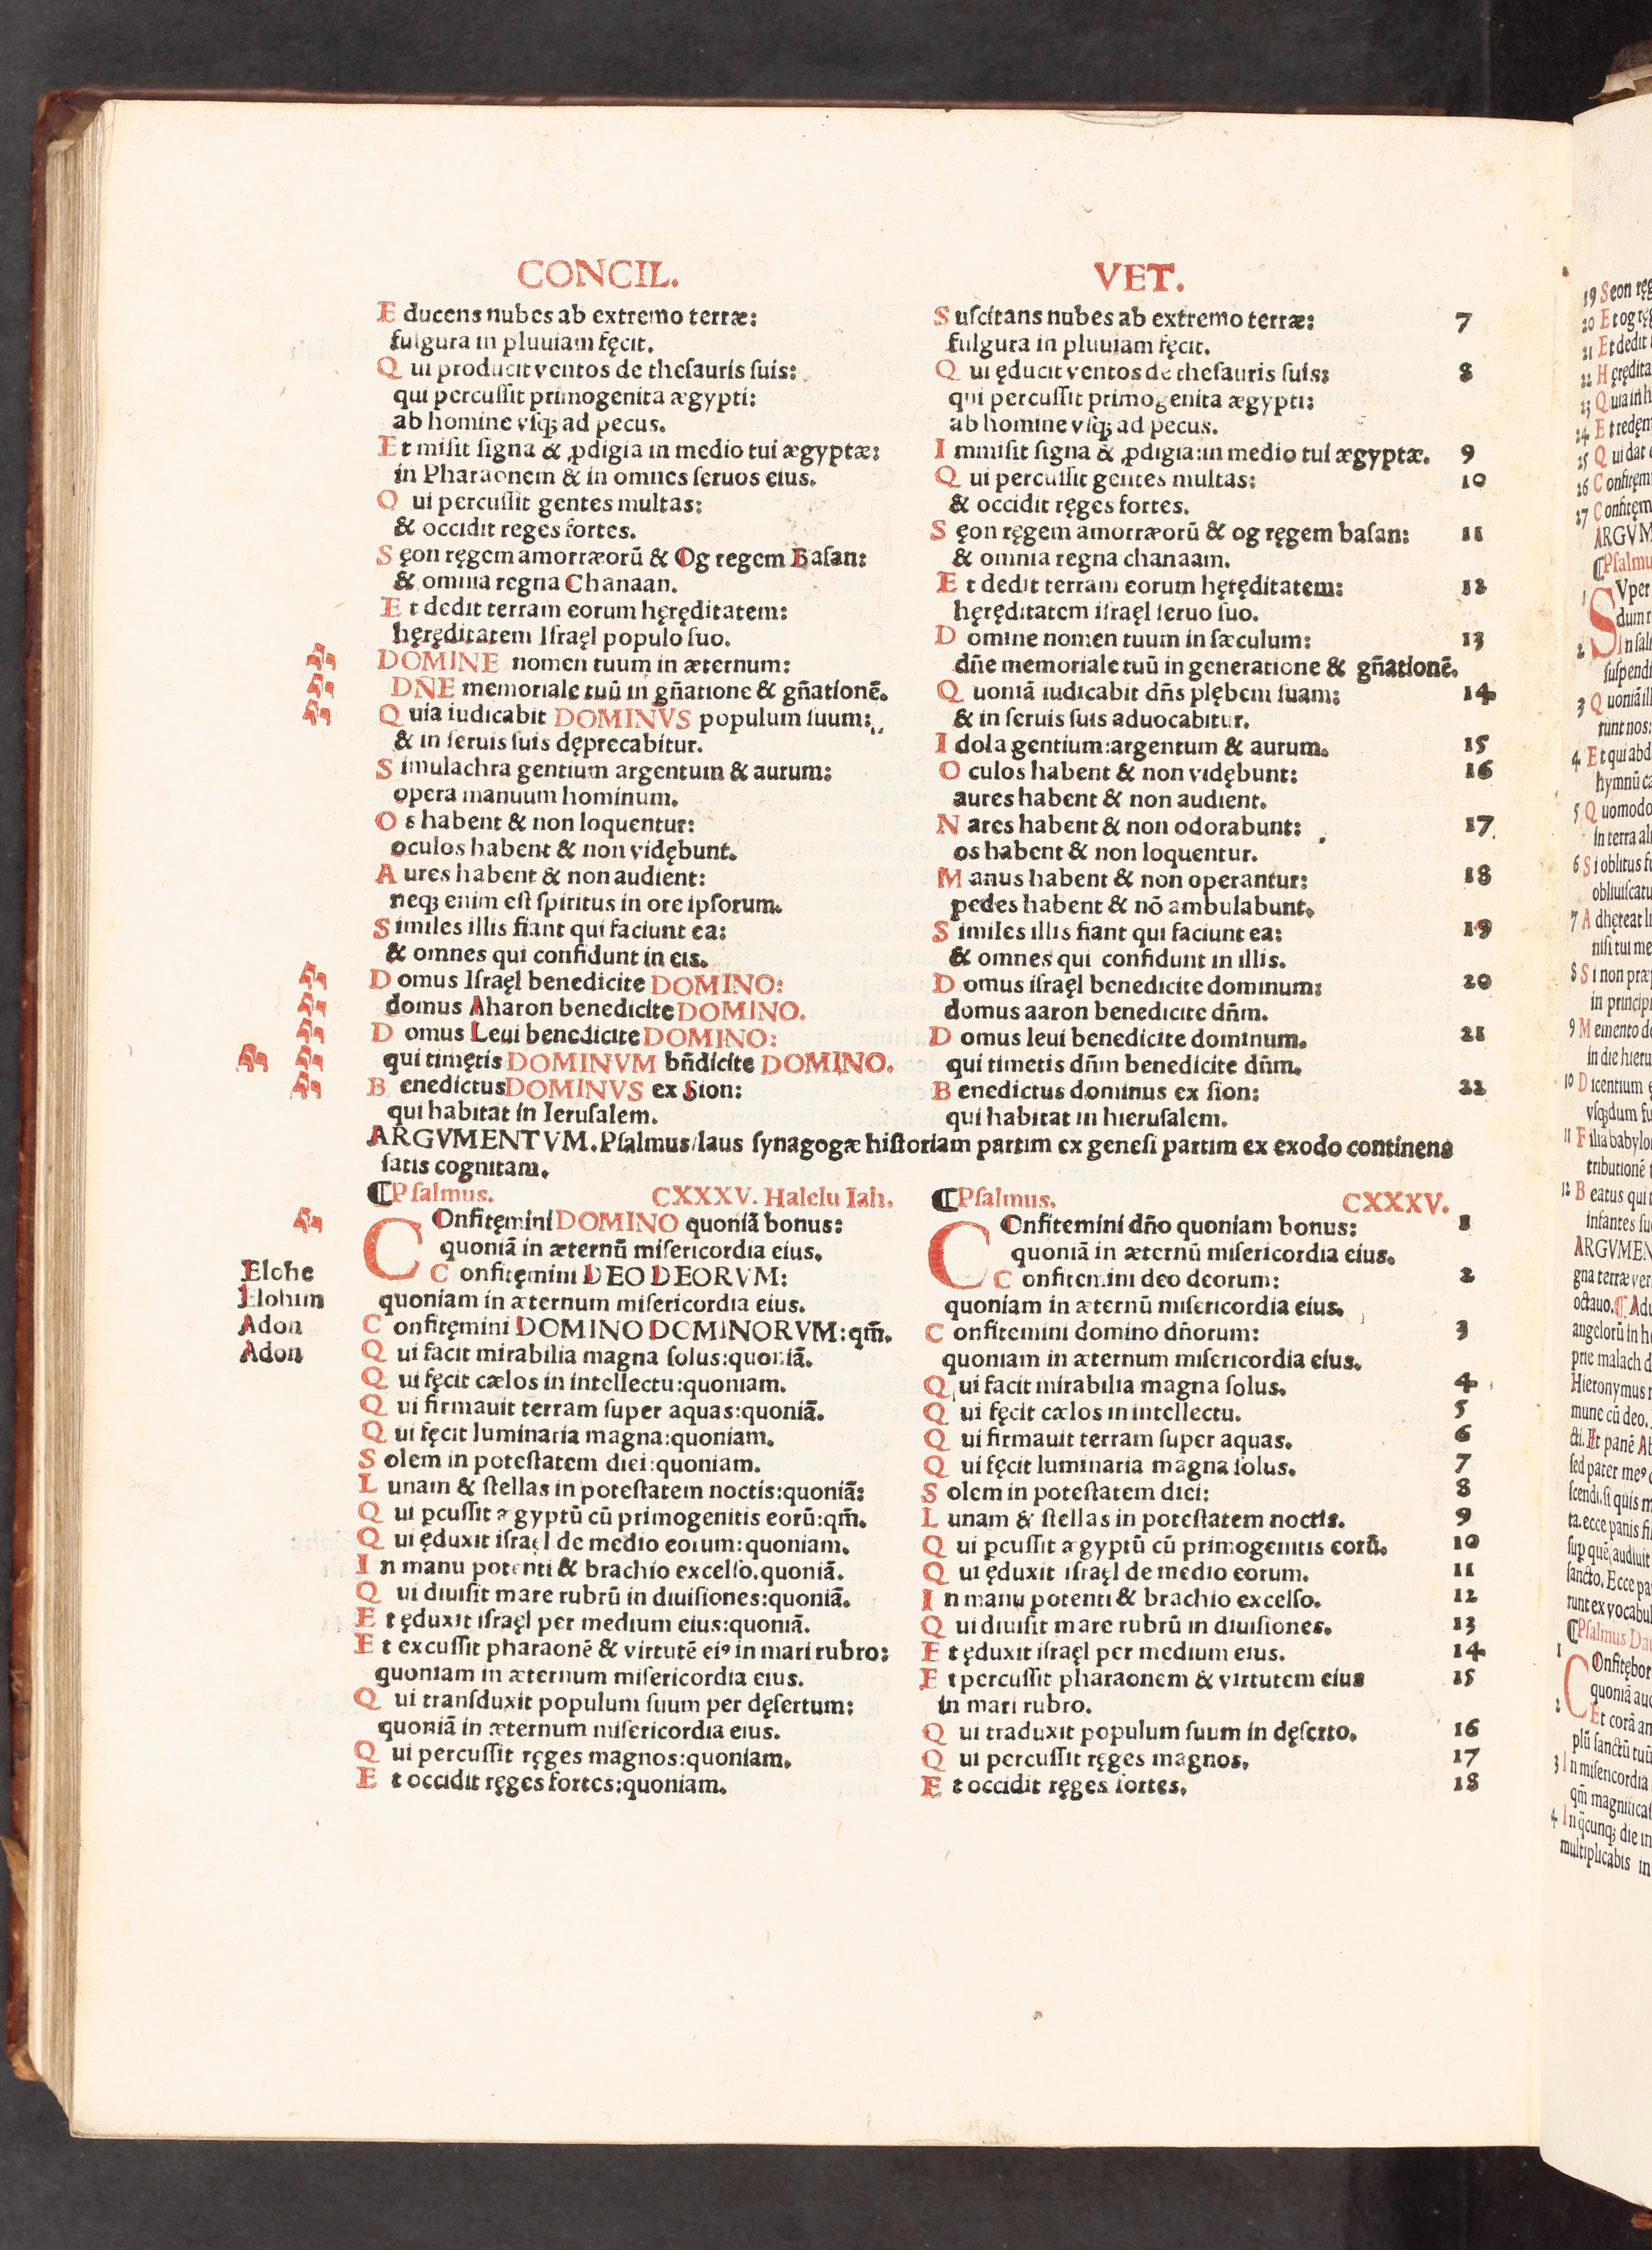 CONCIL.
E ducens nubes ab extremo terræ:
fulgura in pluuiam fęcit.
Q ui producit ventos de theſauris ſuis:
qui percuſſit primogenita ægypti:
ab homine vſq; ad pecus.
E t miſit ſigna & ꝓdigia in medio tui ægyptæ:
in Pharaonem & in omnes ſeruos eius.
Q ui percuſſit gentes multas:
& occidit reges fortes.
S ęon ręgem amorræorū & Og regem Baſan:
& omnia regna Chanaan.
E t dedit terram eorum hęręditatem:
hęręditatem Iſraęl populo ſuo.
DOMINE nomen tuum in æternum:
DÑE memoriale tuū in gñatione & gñationē.
Q uia iudicabit DOMINVS populum ſuum:
& in ſeruis ſuis dęprecabitur.
S imulachra gentium argentum & aurum:
opera manuum hominum.
O s habent & non loquentur:
oculos habent & non vidębunt.
A ures habent & non audient:
neq; enim eſt ſpiritus in ore ipſorum.
S imiles illis fiant qui faciunt ea:
& omnes qui confidunt in eis.
D omus Iſraęl benedicite DOMINO:
domus Aharon benedicite DOMINO.
D omus Leui benedicite DOMINO:
qui timętis DOMINVM bñdicite DOMINO.
B enedictus DOMINVS ex Sion:
qui habitat in Ieruſalem.
VET.
S uſcitans nubes ab extremo terræ: 7
fulgura in pluuiam fęcit.
Q ui ęducit ventos de theſauris ſuis: 8
qui percuſſit primogenita ægypti:
ab homine vſq; ad pecus.
I mmiſit ſigna & ꝓdigia:in medio tui ægyptæ. 9
Q ui percuſſit gentes multas: 10
& occidit ręges fortes.
S ęon ręgem amorræorū & og ręgem baſan: 11
& omnia regna chanaam.
E t dedit terram eorum hęręditatem: 12
hęręditatem iſraęl ſeruo ſuo.
D omine nomen tuum in ſæculum: 13
dñe memoriale tuū in generatione & gñationē.
Q uoniā iudicabit dñs plębem ſuam: 14
& in ſeruis ſuis aduocabitur.
I dola gentium:argentum & aurum. 15
O culos habent & non vidębunt: 16
aures habent & non audient.
N ares habent & non odorabunt: 17
os habent & non loquentur.
M anus habent & non operantur: 18
pedes habent & nō ambulabunt.
S imiles illis fiant qui faciunt ea: 19
& omnes qui confidunt in illis.
D omus iſraęl benedicite dominum: 20
domus aaron benedicite dñm.
D omus leui benedicite dominum. 21
qui timetis dñm benedicite dñm.
B enedictus dominus ex ſion: 22
qui habitat in hieruſalem.
ARGVMENTVM. Pſalmus/laus ſynagogæ hiſtoriam partim ex geneſi partim ex exodo continens
ſatis cognitam.
¶Pſalmus. CXXXV. Halelu Iah.
COnfitęmini DOMINO quoniā bonus:
quoniā in æternū miſericordia eius.
C onfitęmini DEO DEORVM:
quoniam in æternum miſericordia eius.
C onfitęmini DOMINO DOMINORVM:qm̄.
Q ui facit mirabilia magna ſolus:quoniā.
Q ui fęcit cælos in intellectu:quoniam.
Q ui firmauit terram ſuper aquas:quoniā.
Q ui fęcit luminaria magna:quoniam.
S olem in poteſtatem diei:quoniam.
L unam & ſtellas in poteſtatem noctis:quoniā:
Q ui ꝑcuſſit ægyptū cū primogenitis eorū:qm̄.
Q ui ęduxit iſraęl de medio eorum:quoniam.
I n manu potenti & brachio excelſo.quoniā.
Q ui diuiſit mare rubrū in diuiſiones:quoniā.
E t ęduxit iſraęl per medium eius:quoniā.
E t excuſſit pharaonē & virtutē eiꝰ in mari rubro:
quoniam in æternum miſericordia eius.
Q ui tranſduxit populum ſuum per dęſertum:
quoniā in æternum miſericordia eius.
Q ui percuſſit ręges magnos:quoniam.
E t occidit ręges fortes:quoniam.
Elohe
Elohim
Adon
Adon
¶Pſalmus. CXXXV.
COnfitemini dño quoniam bonus: 1
quoniā in æternū miſericordia eius.
C onfitemini deo deorum: 2
quoniam in æternū miſericordia eius.
C onfitemini domino dñorum: 3
quoniam in æternum miſericordia eius.
Q ui facit mirabilia magna ſolus. 4
Q ui fęcit cælos in intellectu. 5
Q ui firmauit terram ſuper aquas. 6
Q ui fęcit luminaria magna ſolus. 7
S olem in poteſtatem diei: 8
L unam & ſtellas in poteſtatem noctis. 9
Q ui ꝑcuſſit ægyptū cū primogenitis eorū. 10
Q ui ęduxit iſraęl de medio eorum. 11
I n manu potenti & brachio excelſo. 12
Q ui diuiſit mare rubrū in diuiſiones. 13
E t ęduxit iſraęl per medium eius. 14
E t percuſſit pharaonem & virtutem eius 15
in mari rubro.
Q ui traduxit populum ſuum in dęſerto. 16
Q ui percuſſit ręges magnos. 17
E t occidit ręges fortes. 18